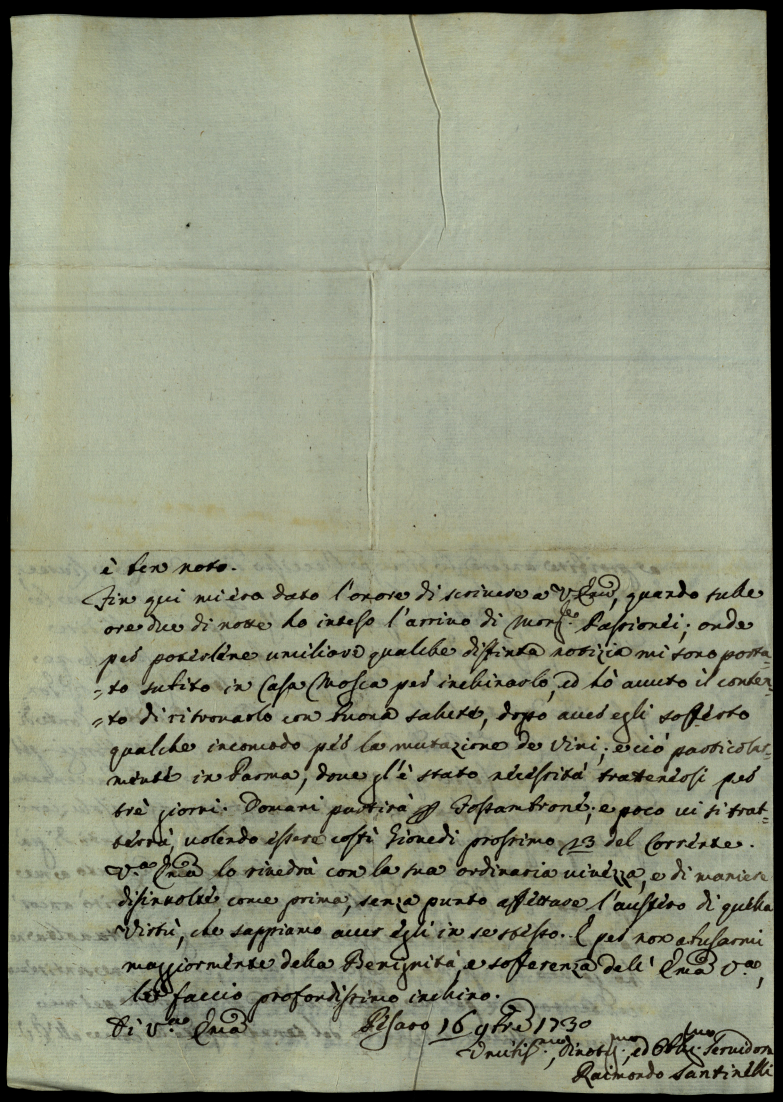 è ben noto.
Fin qui mi ero dato l'onore di scrivere a V. Emã, quando sulle
ore due di notte ho inteso l'arrivo di Monsᵉ. Passionei; onde
per poterlene umiliare qualche distinta notizia mi sono porta-
=to subito in Casa Mosca per inchinarlo, ed hò avuto il conten-
=to di ritrovarlo con buona salute, dopo aver egli sofferto
qualche incomodo per la mutazione de Vini; e ciò particolar-
mente in Parma, dove gl'è stato necessità tratenersi per
trè giorni. Domani partirà p Fossambrone; e poco vi si trat-
terrà, volendo essere costì Giovedi prossimo 23 del Corrente.
V.ᵃ Emã lo rivedrà con la sua ordinaria vivezza, e di maniere
disinvolte come prima, senza punto affettare l'austero di quella
Virtù, che sappiamo aver egli in se stesso. E per non abusarmi
maggiormente della Benignità, e sofferenza dell' Emã V.ᵃ,
le faccio profondissimo inchino.
Di V.ᵃ Emã Pesaro 16 9bre 1730
Umilis.ᵐᵒ, Divotis.ᵐᵒ, ed Obblig.ᵐᵒ Servidore
Raimondo Santinelli